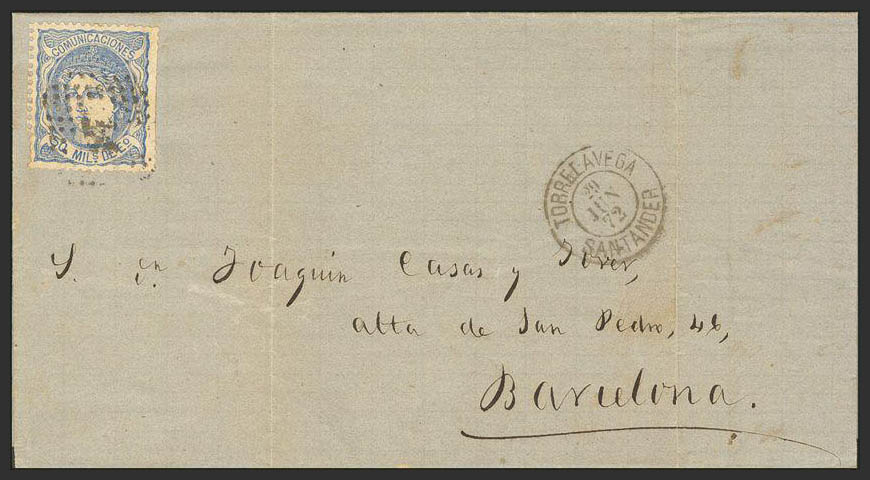 COMUNICACIONES
50 MILS DE Eo
TORRELAVEGA
29
JUN
72
SANTANDER
S. Dn Joaquin Casas y Jover,
alta de San Pedro, 46,
Barcelona.